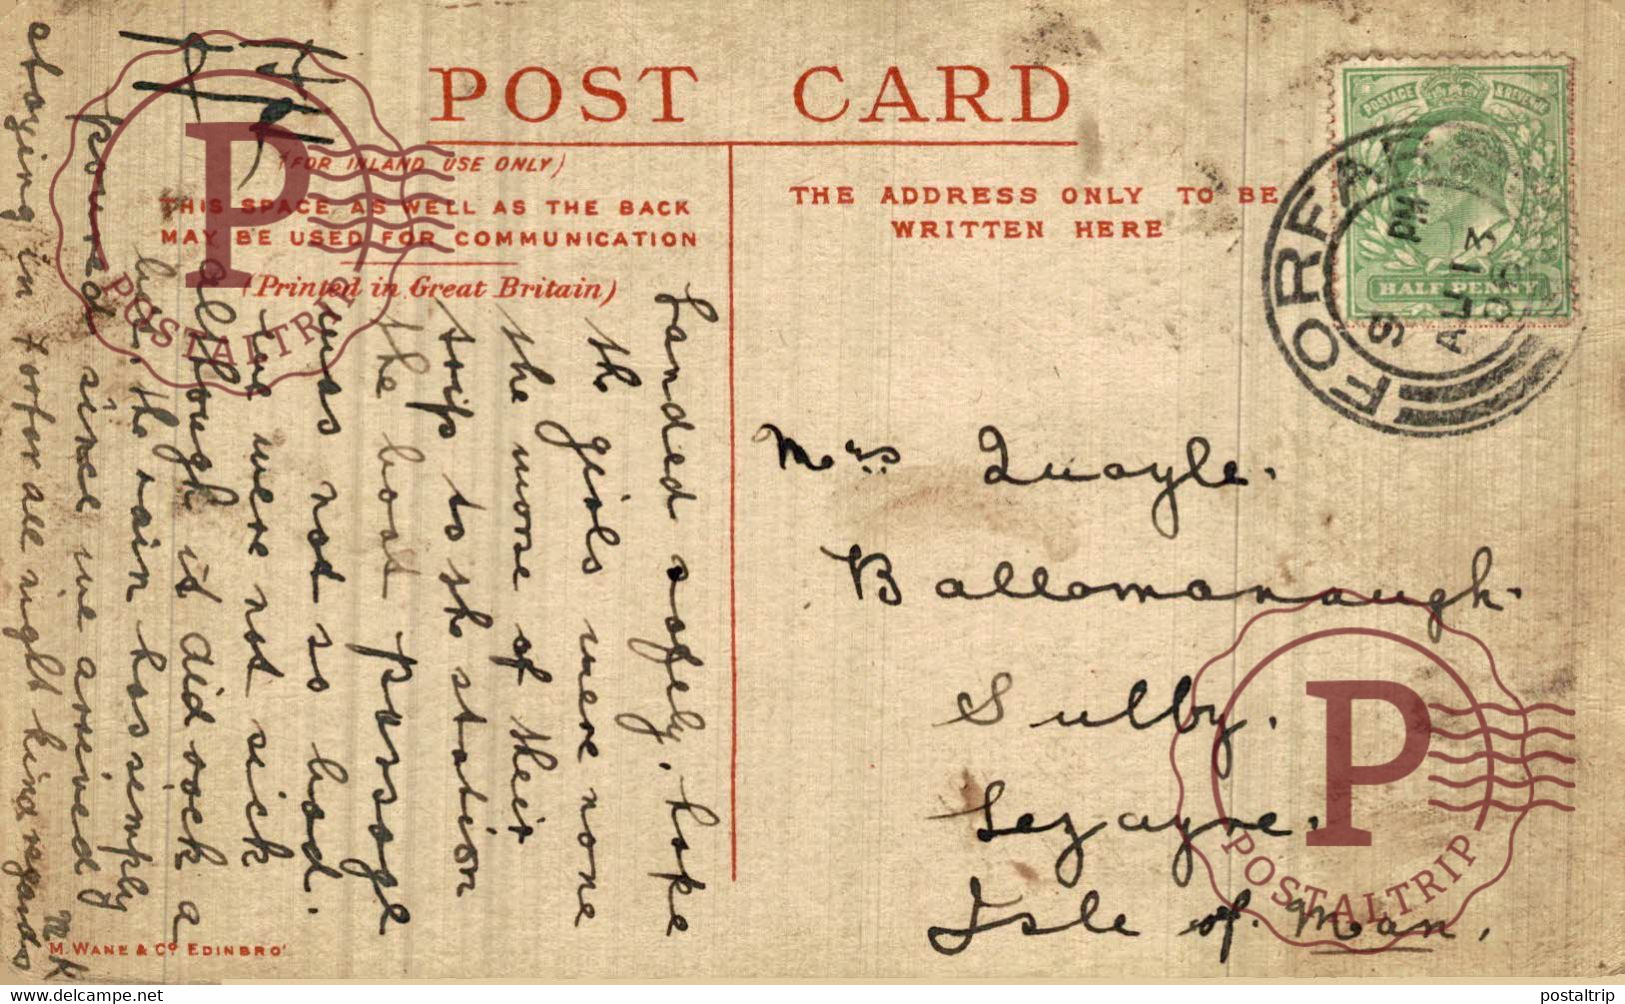 POST CARD
(FOR INLAND USE ONLY)
THIS SPACE AS WELL AS THE BACK
MAY BE USED FOR COMMUNICATION
(Printed in Great Britain)
THE ADDRESS ONLY TO BE
WRITTEN HERE
POSTAGE & REVENUE
HALF PENNY
FORFAR
5 PM
AU 13
Landed safely, hope
the girls were none
the worse of their
trip to the station
the boat passage
was not so bad.
we were not sick
although it did rock a
but the rain has simply
poured since we arrived
staying in Forfar all night kind regards
M K
Mrs Quayle.
Ballamanaugh.
Sulby.
Lezayre.
Isle of Man.
M. WANE & Co EDINBRO'
P
POSTALTRIP
P
POSTALTRIP
www.delcampe.net
postaltrip